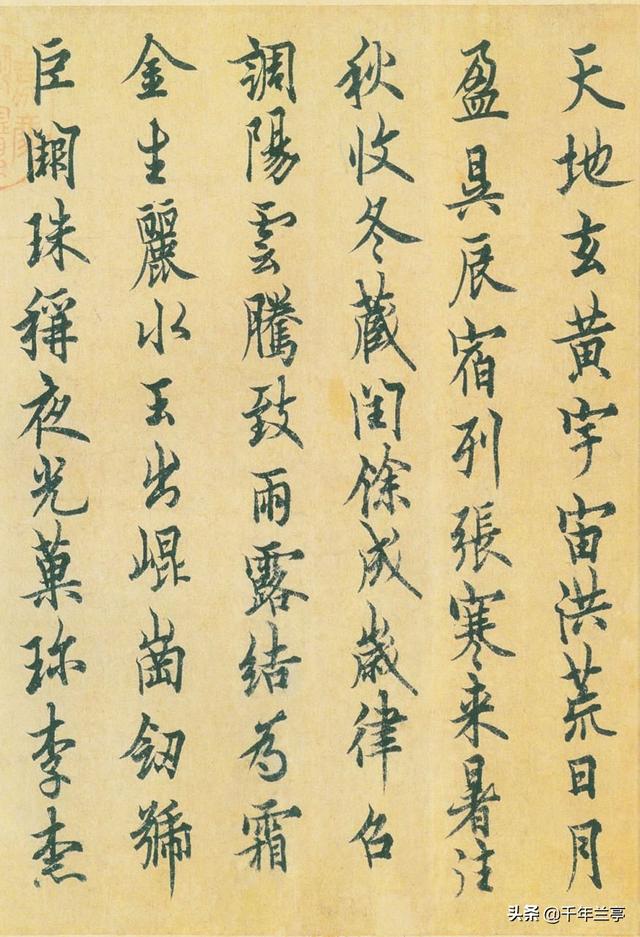 天地玄黃宇宙洪荒日月
盈昃辰宿列張寒来暑往
秋收冬藏閏餘成歲律召
調陽雲騰致雨露結為霜
金生麗水玉出崐崗劒號
巨闕珠稱夜光菓珎李柰
头条 @千年兰亭